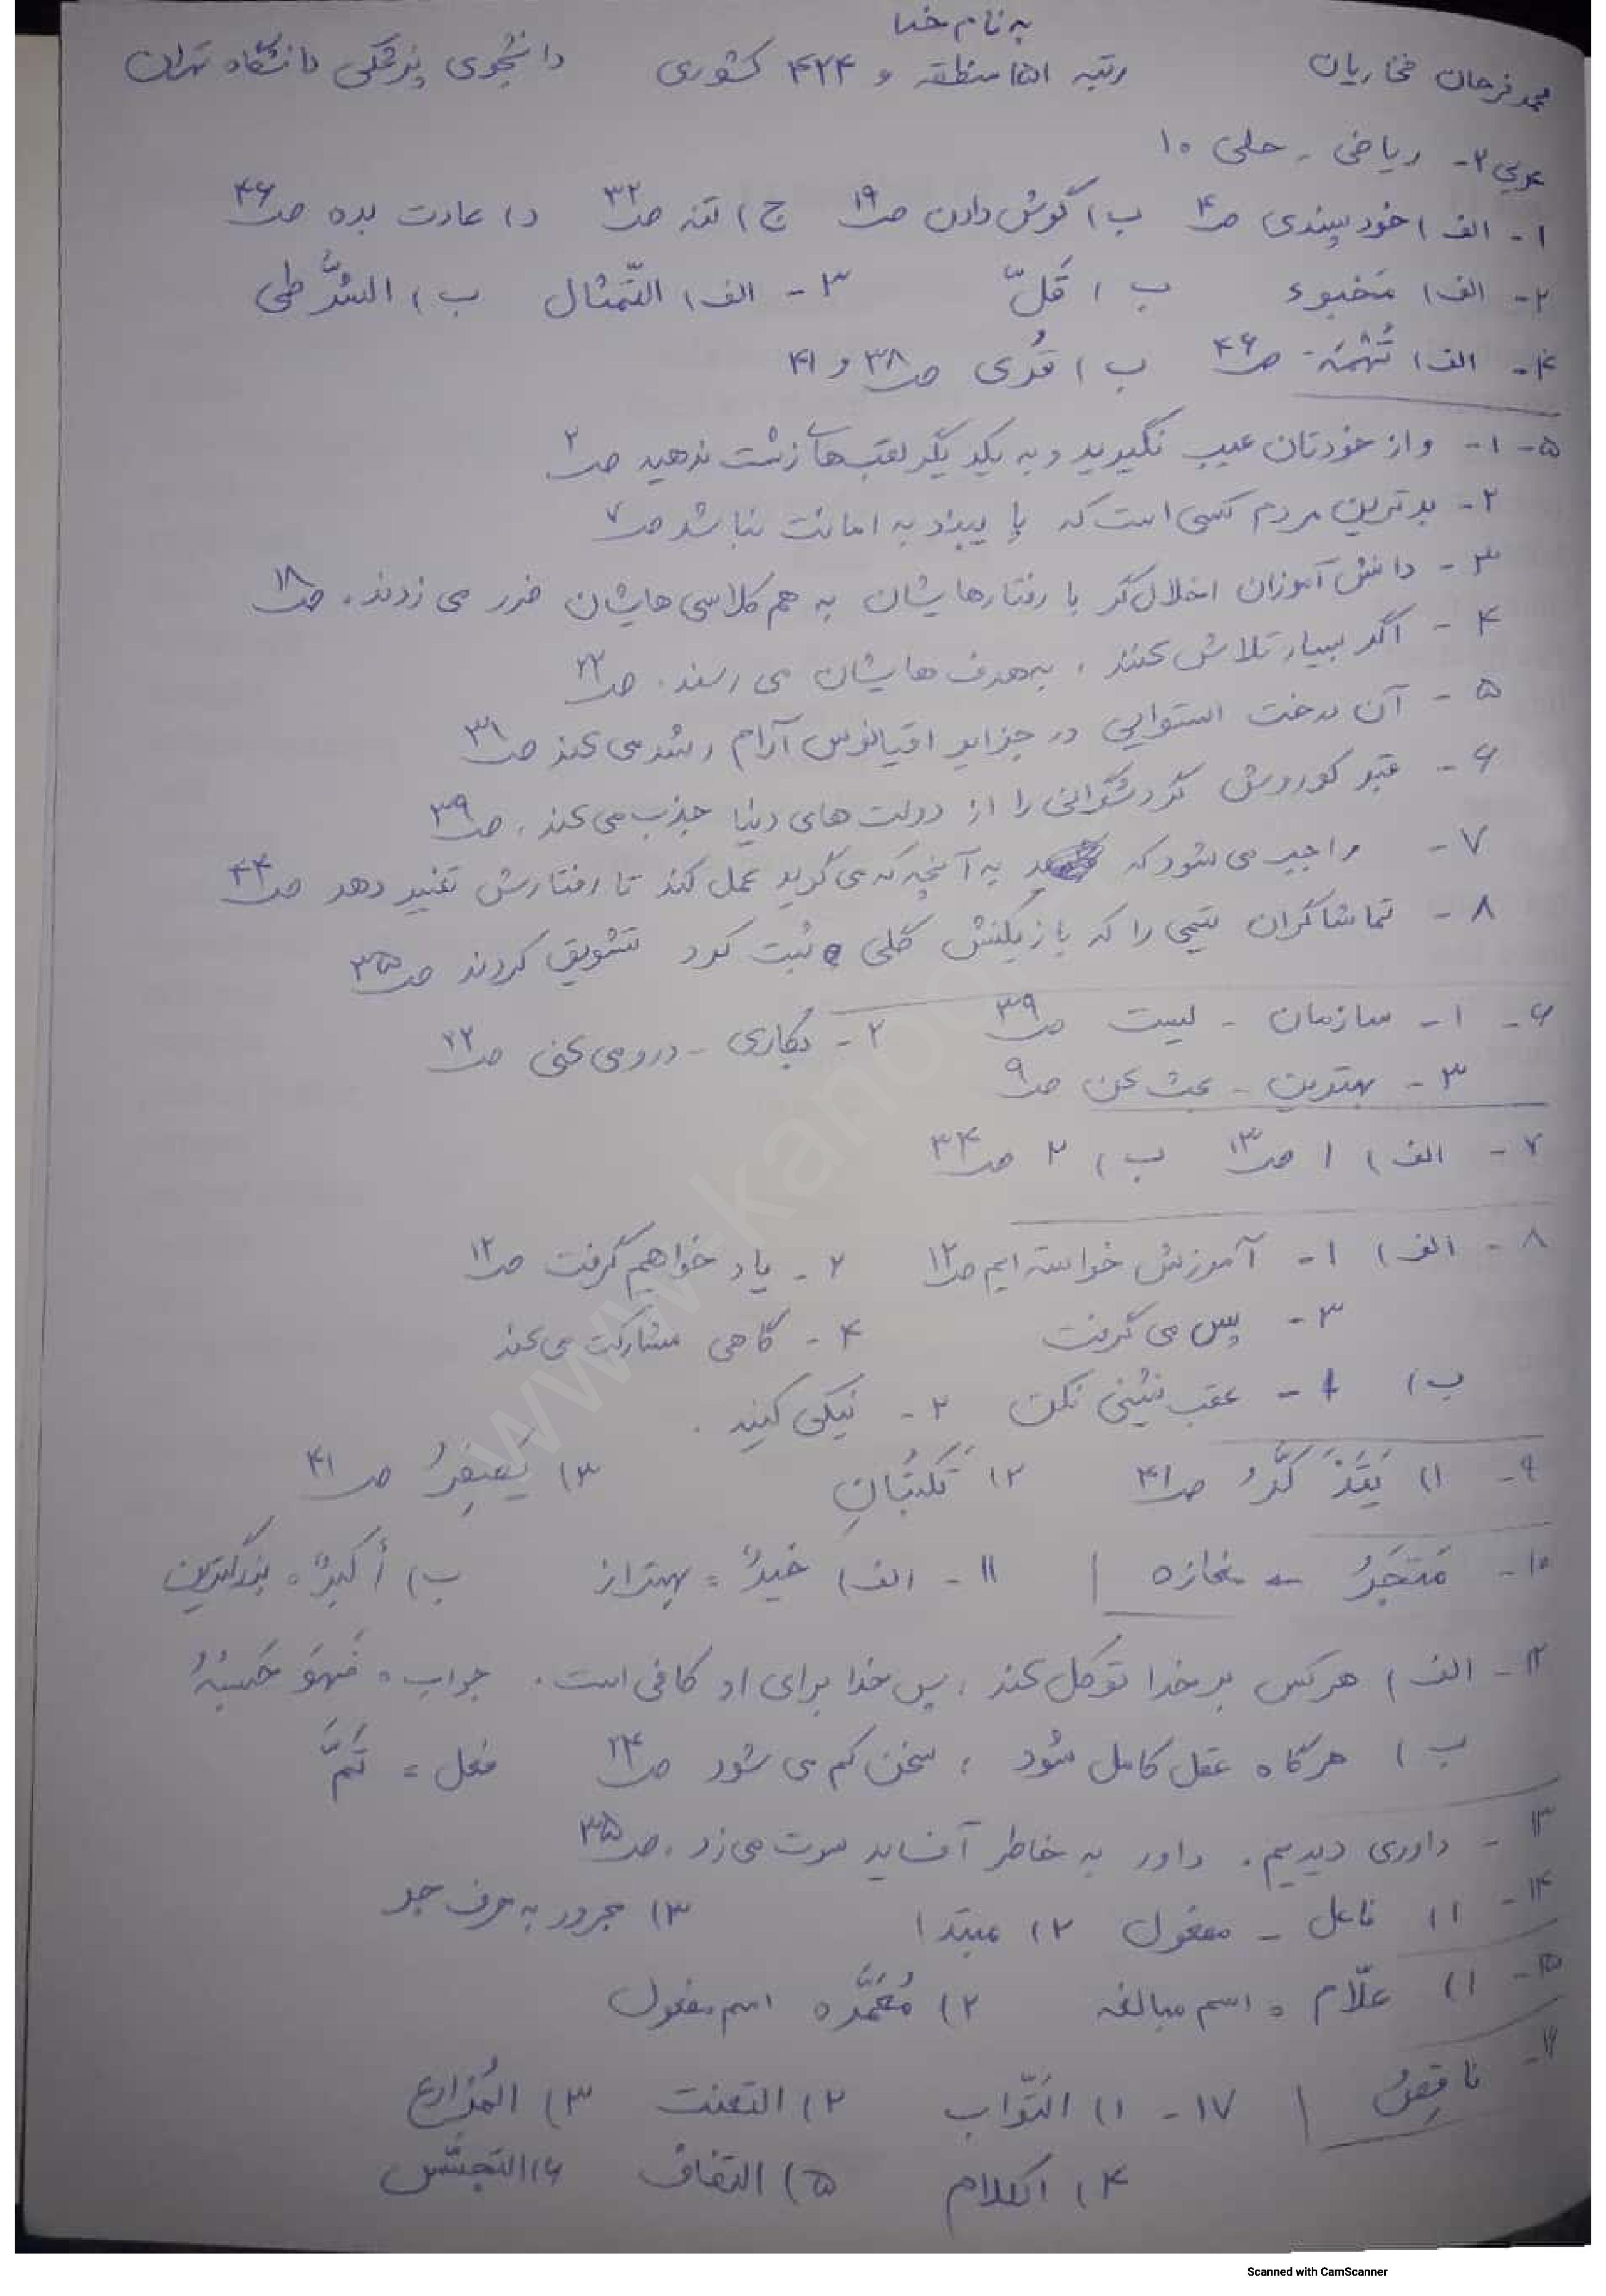 به نام خدا
محمد فرحان فخاریان رتبه ۱۵۱ منطقه و ۴۲۴ کشوری دانشجوی پزشکی دانشگاه تهران
عربی ۲- ریاضی - حلی ۱۰
۱- الف) خودپسندی ص۴ ب) گوش دادن ص۱۹ ج) تنه ص۳۲ د) عادت بده ص۴۶
۲- الف) مَخبوء ب) قَلّ ۳- الف) التّمثال ب) الشُّرطی
۴- الف) تُهْمَة ص۴۶ ب) قُری ص۳۸ و ۴۱
۵- ۱- و از خودتان عیب نگیرید و به یکدیگر لقب‌های زشت ندهید ص۲
۲- بدترین مردم کسی است که پایبند به امانت نباشد ص۷
۳- دانش آموزان اخلال‌گر با رفتارهایشان به هم کلاسی هایشان ضرر می زدند. ص۱۸
۴- اگر بسیار تلاش کنند، به هدف هایشان می رسند. ص۲۲
۵- آن درخت استوایی در جزایر اقیانوس آرام رشد می کند ص۳۱
۶- قبر کوروش گردشگرانی را از دولت های دنیا جذب می کند. ص۳۹
۷- واجب می شود که به آنچه که می گوید عمل کند تا رفتارش تغییر دهد ص۴۴
۸- تماشاگران تیمی را که بازیکنش گلی ثبت کرد تشویق کردند ص۳۵
۶- ۱- سازمان - لیست ص۳۹ ۲- بکاری - درو می کنی ص۲۲
۳- بهترین - بحث کن ص۹
۷- الف) ۱ ص۱۳ ب) ۲ ص۳۴
۸- الف) ۱- آمرزش خواسته ایم ص۱۲ ۲- یاد خواهیم گرفت ص۱۲
۳- پس می گرفت ۴- گاهی مشارکت می کند
ب) ۱- عقب نشینی نکن ۲- نیکی کنید.
۹- ۱) یَتَذَکَّرُ ص۴۱ ۲) تَکتُبَانِ ۳) یَغفِرُ ص۴۱
۱۰- مَتجَرُ ← مغازه ۱۱- الف) خَیرٌ = بهتر از ب) أکبَرُ = بزرگترین
۱۲- الف) هرکس بر خدا توکل کند، پس خدا برای او کافی است. جواب = فَهُوَ حَسبُهُ
ب) هرگاه عقل کامل شود، سخن کم می شود ص۲۴ فعل = تَمَّ
۱۳- داوری دیدیم. داور به خاطر آفساید سوت می زد. ص۳۵
۱۴- ۱) فاعل - مفعول ۲) مبتدا ۳) مجرور به حرف جر
۱۵- ۱) علّام = اسم مبالغه ۲) اسم مفعول
۱۶- ناقِصُ ۱۷- ۱) التَّوّاب ۲) التعنت ۳) المُزارع
۴) الکلام ۵) التفاف ۶) التجسّس
www.kanoon
Scanned with CamScanner